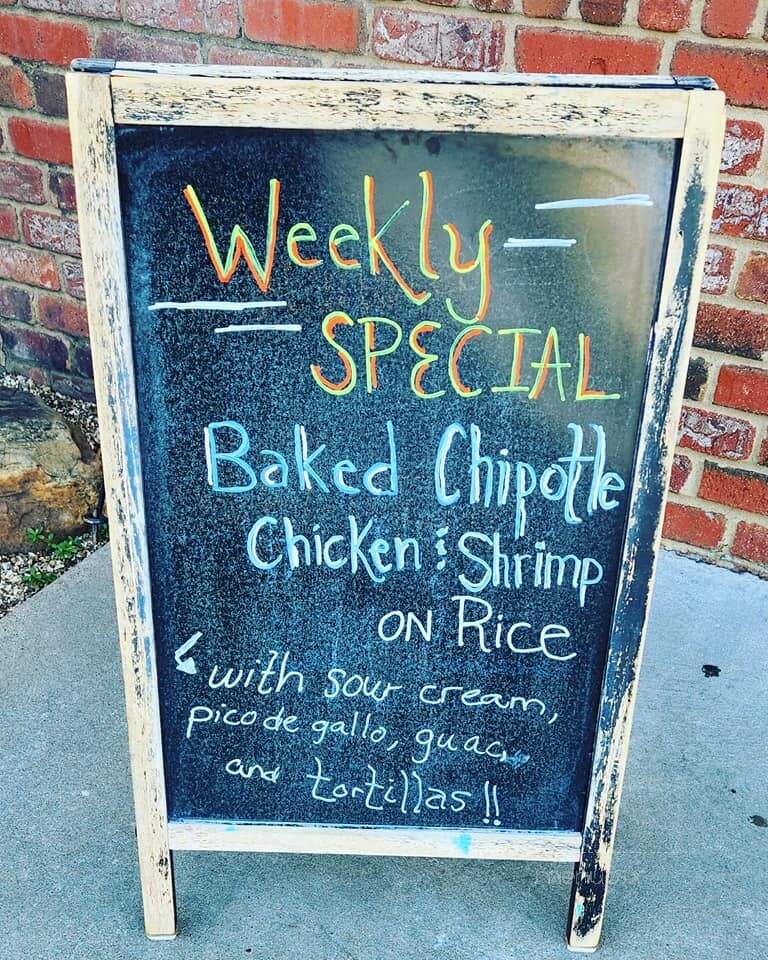 Weekly
SPECIAL
Baked Chipotle
Chicken & Shrimp
ON Rice
with sour cream,
pico de gallo, guac,
and tortillas!!